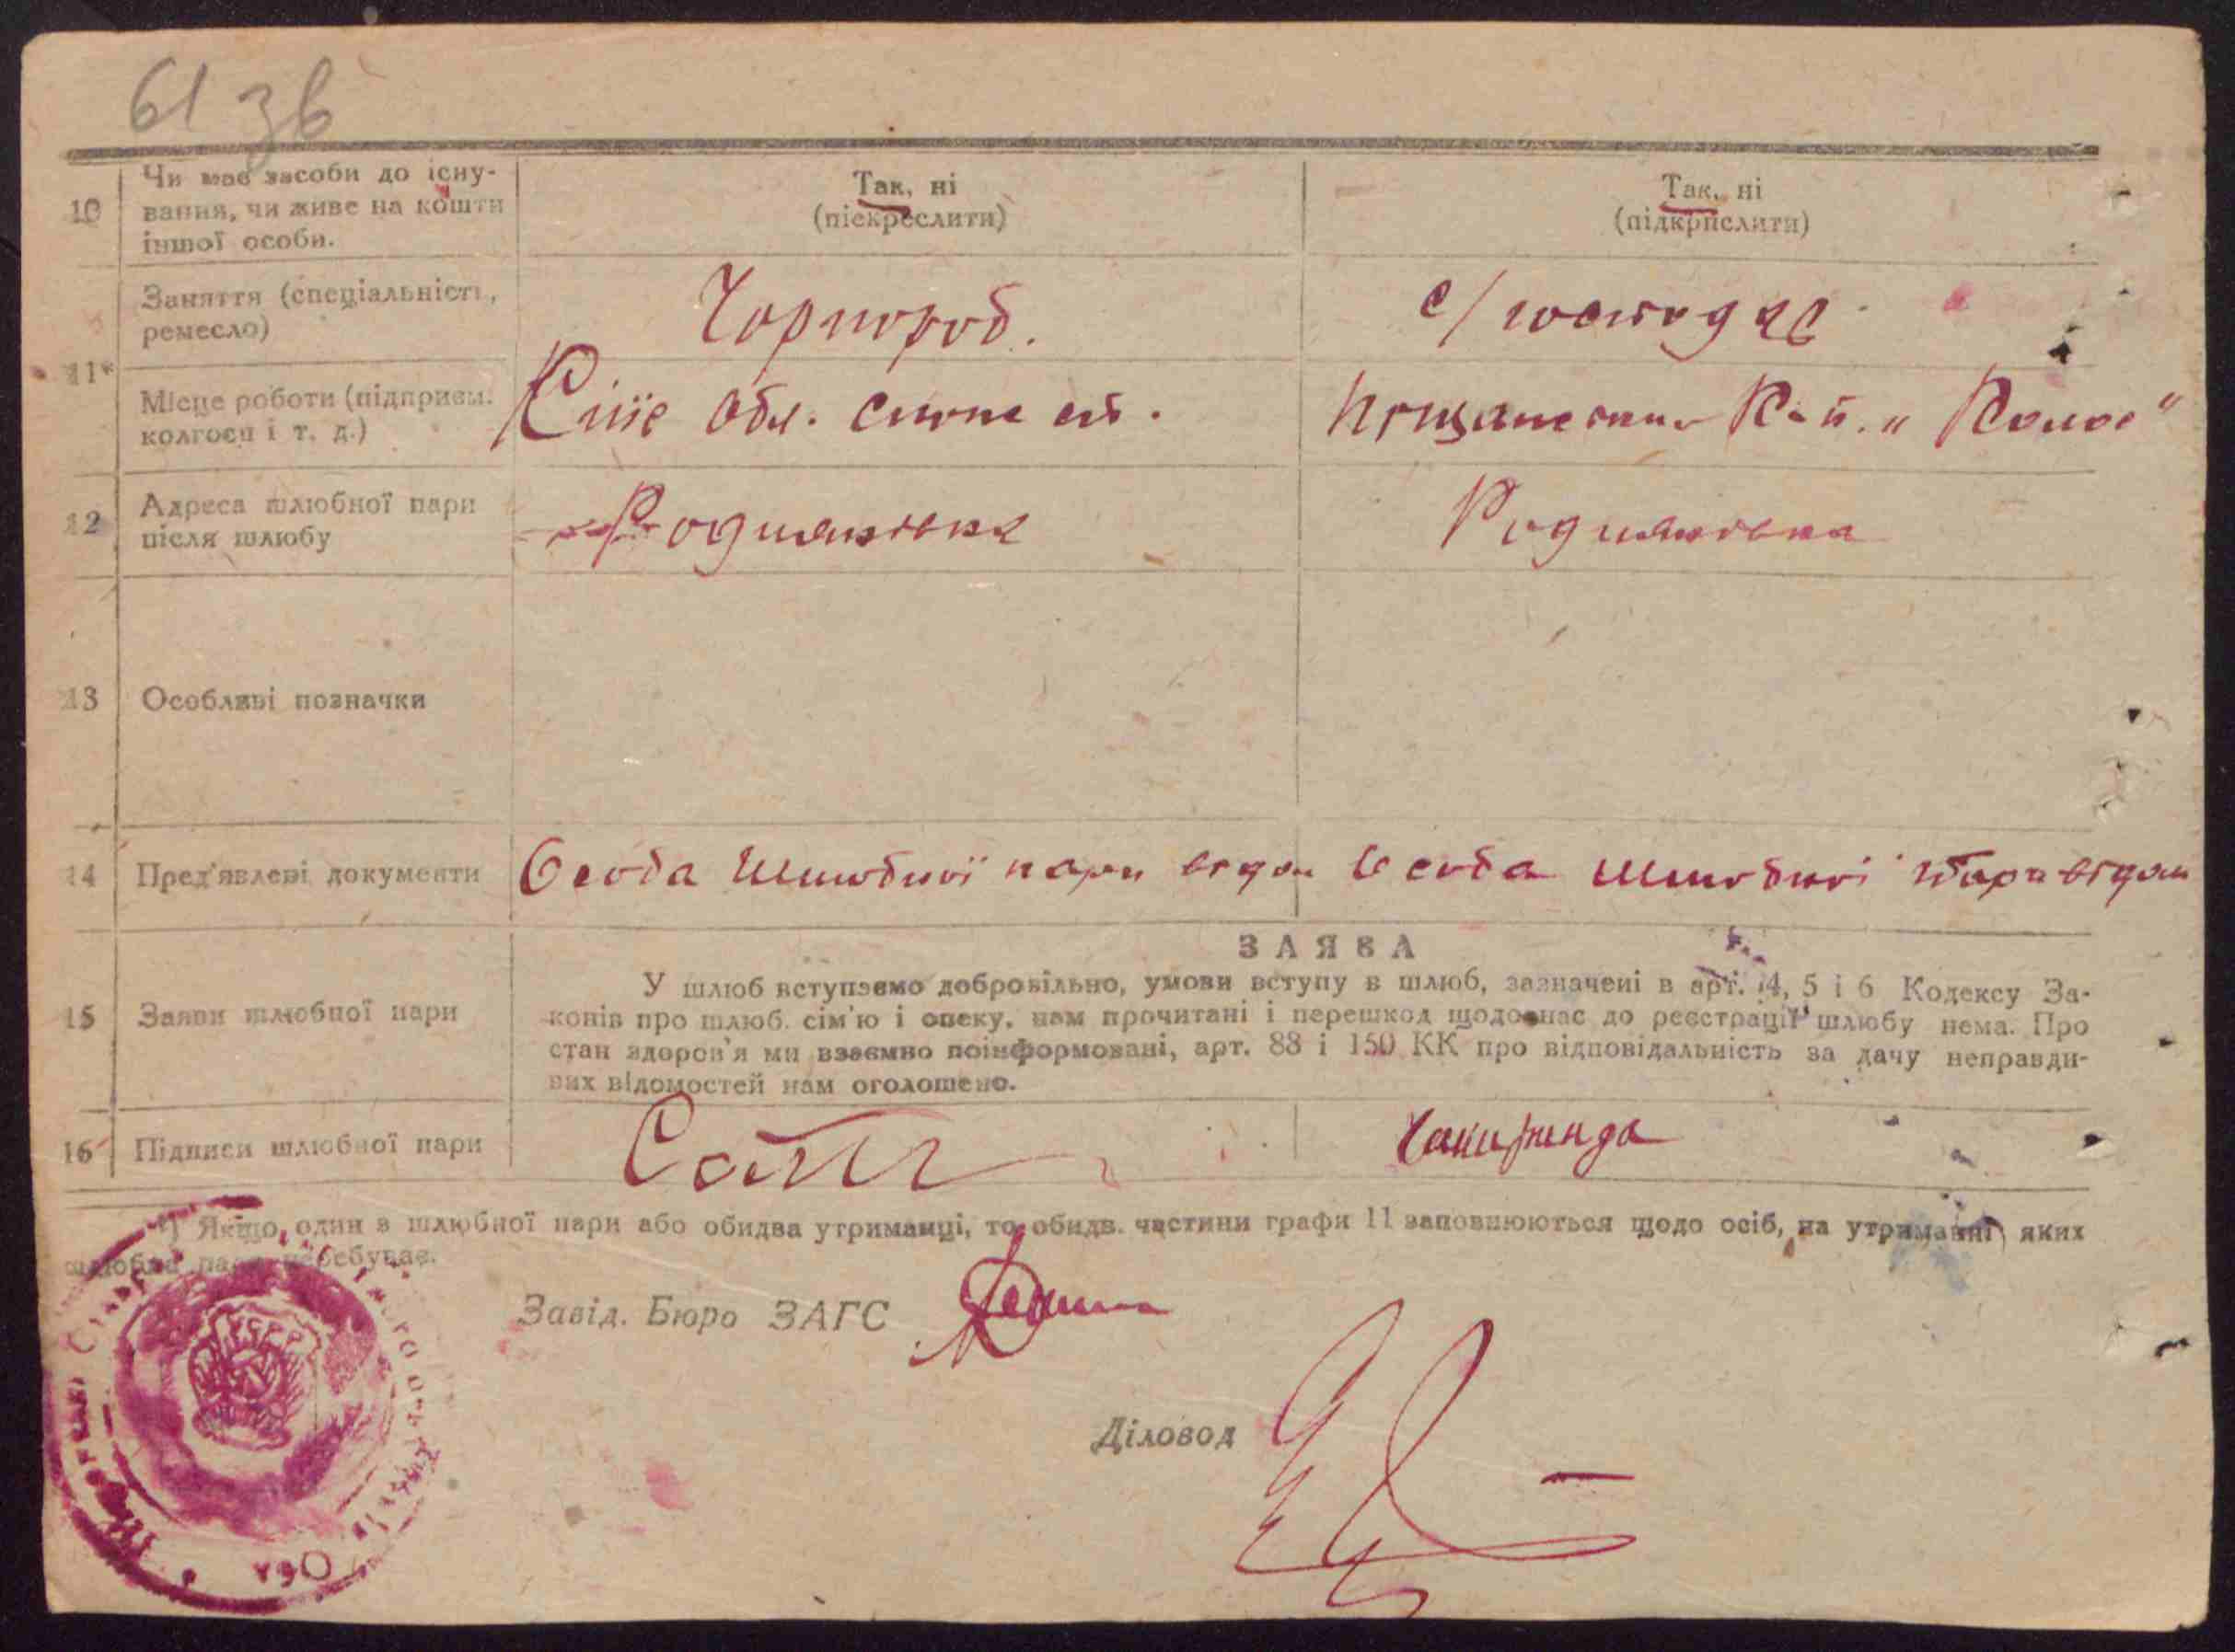 61 зв
10
Чи має засоби до існу-
вання, чи живе на кошти
іншої особи.
Так, ні
(піекреслити)
Так, ні
(підкрислити)
11*
Заняття (спеціальність,
ремесло)
Чорнороб.
с/господар
Місце роботи (підприєм.
колгосп і т. д.)
Обл.
12
Адреса шлюбної пари
після шлюбу
Родниківка
Родниківка
13
Особливі позначки
14
Пред'явлені документи
Особа Шлюбної пари відом
Особа Шлюбної пари відом
15
Заяви шлюбної пари
ЗАЯВА
У шлюб вступаємо добровільно, умови вступу в шлюб, зазначені в арт. 4, 5 і 6 Кодексу За-
конів про шлюб. сім'ю і опеку, нам прочитані і перешкод щодо нас до реєстрації шлюбу нема. Про
стан здоров'я ми взаємно поінформовані, арт. 88 і 150 КК про відповідальність за дачу неправди-
вих відомостей нам оголошено.
16
Підписи шлюбної пари
*) Якщо один з шлюбної пари або обидва утриманці, то обидв. частини графи 11 заповнюються щодо осіб, на утриманні яких
шлюбна пара перебуває.
Завід. Бюро ЗАГС
Діловод